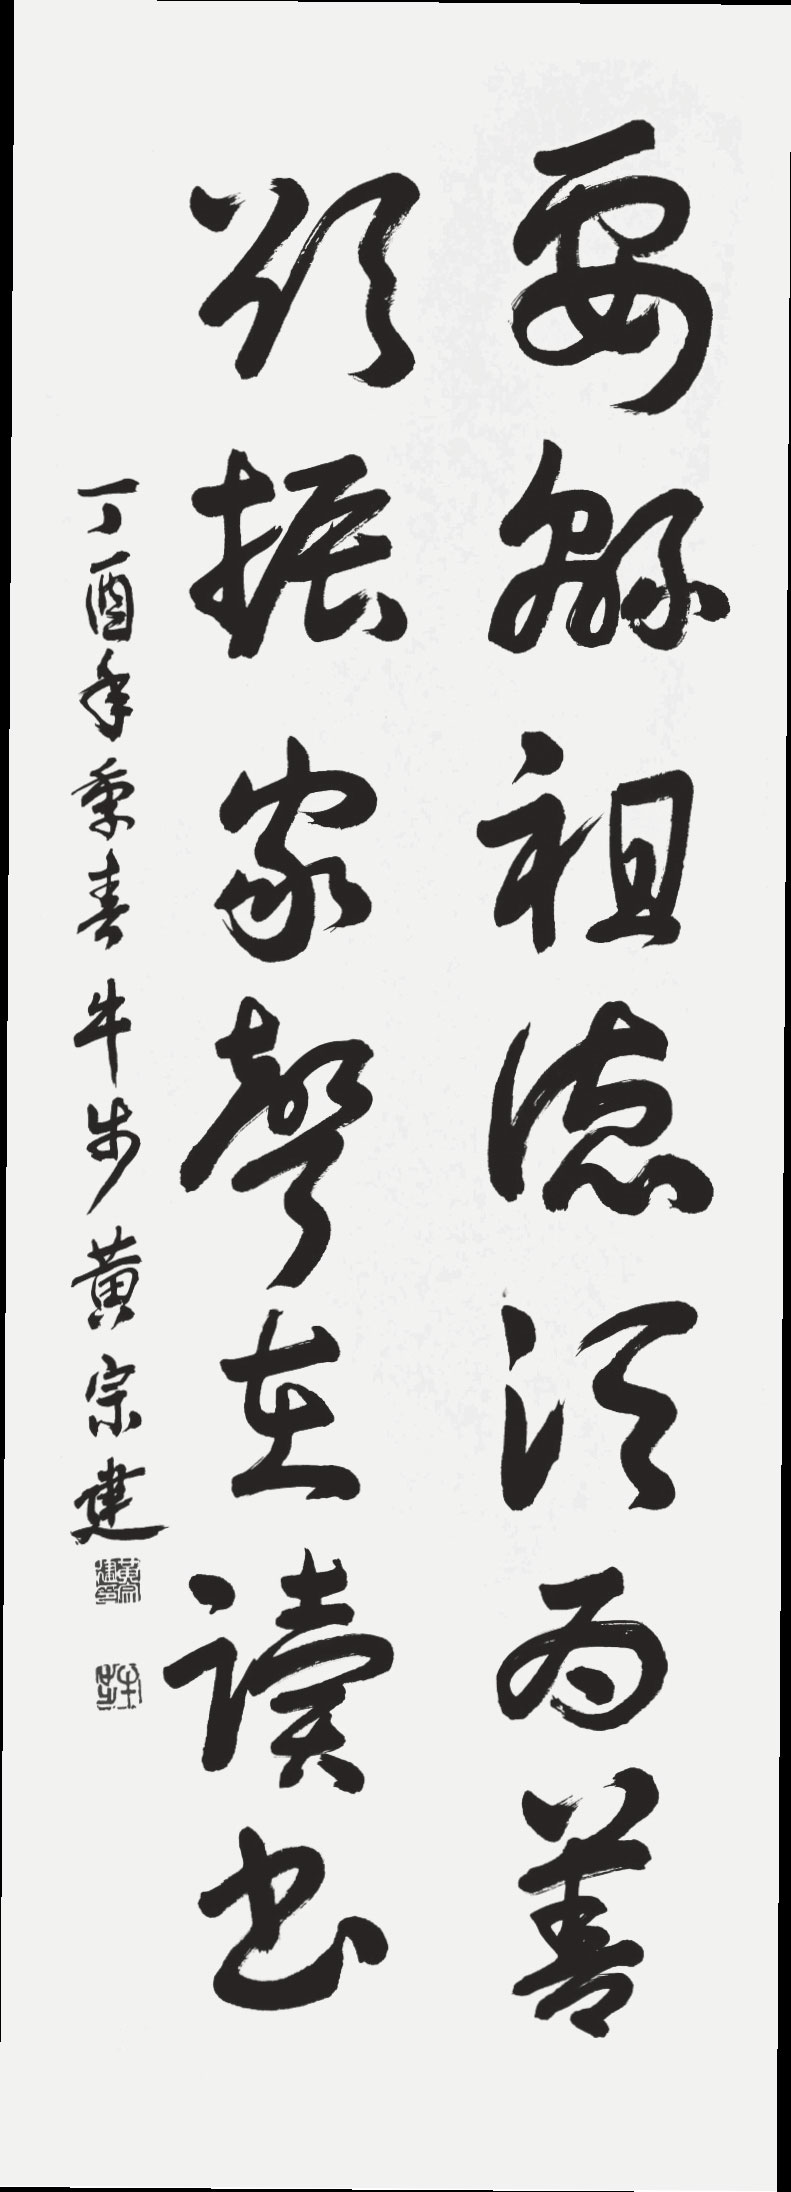 要緜祖德須為善
欲振家聲在讀书
丁酉年季春牛步黃宗建